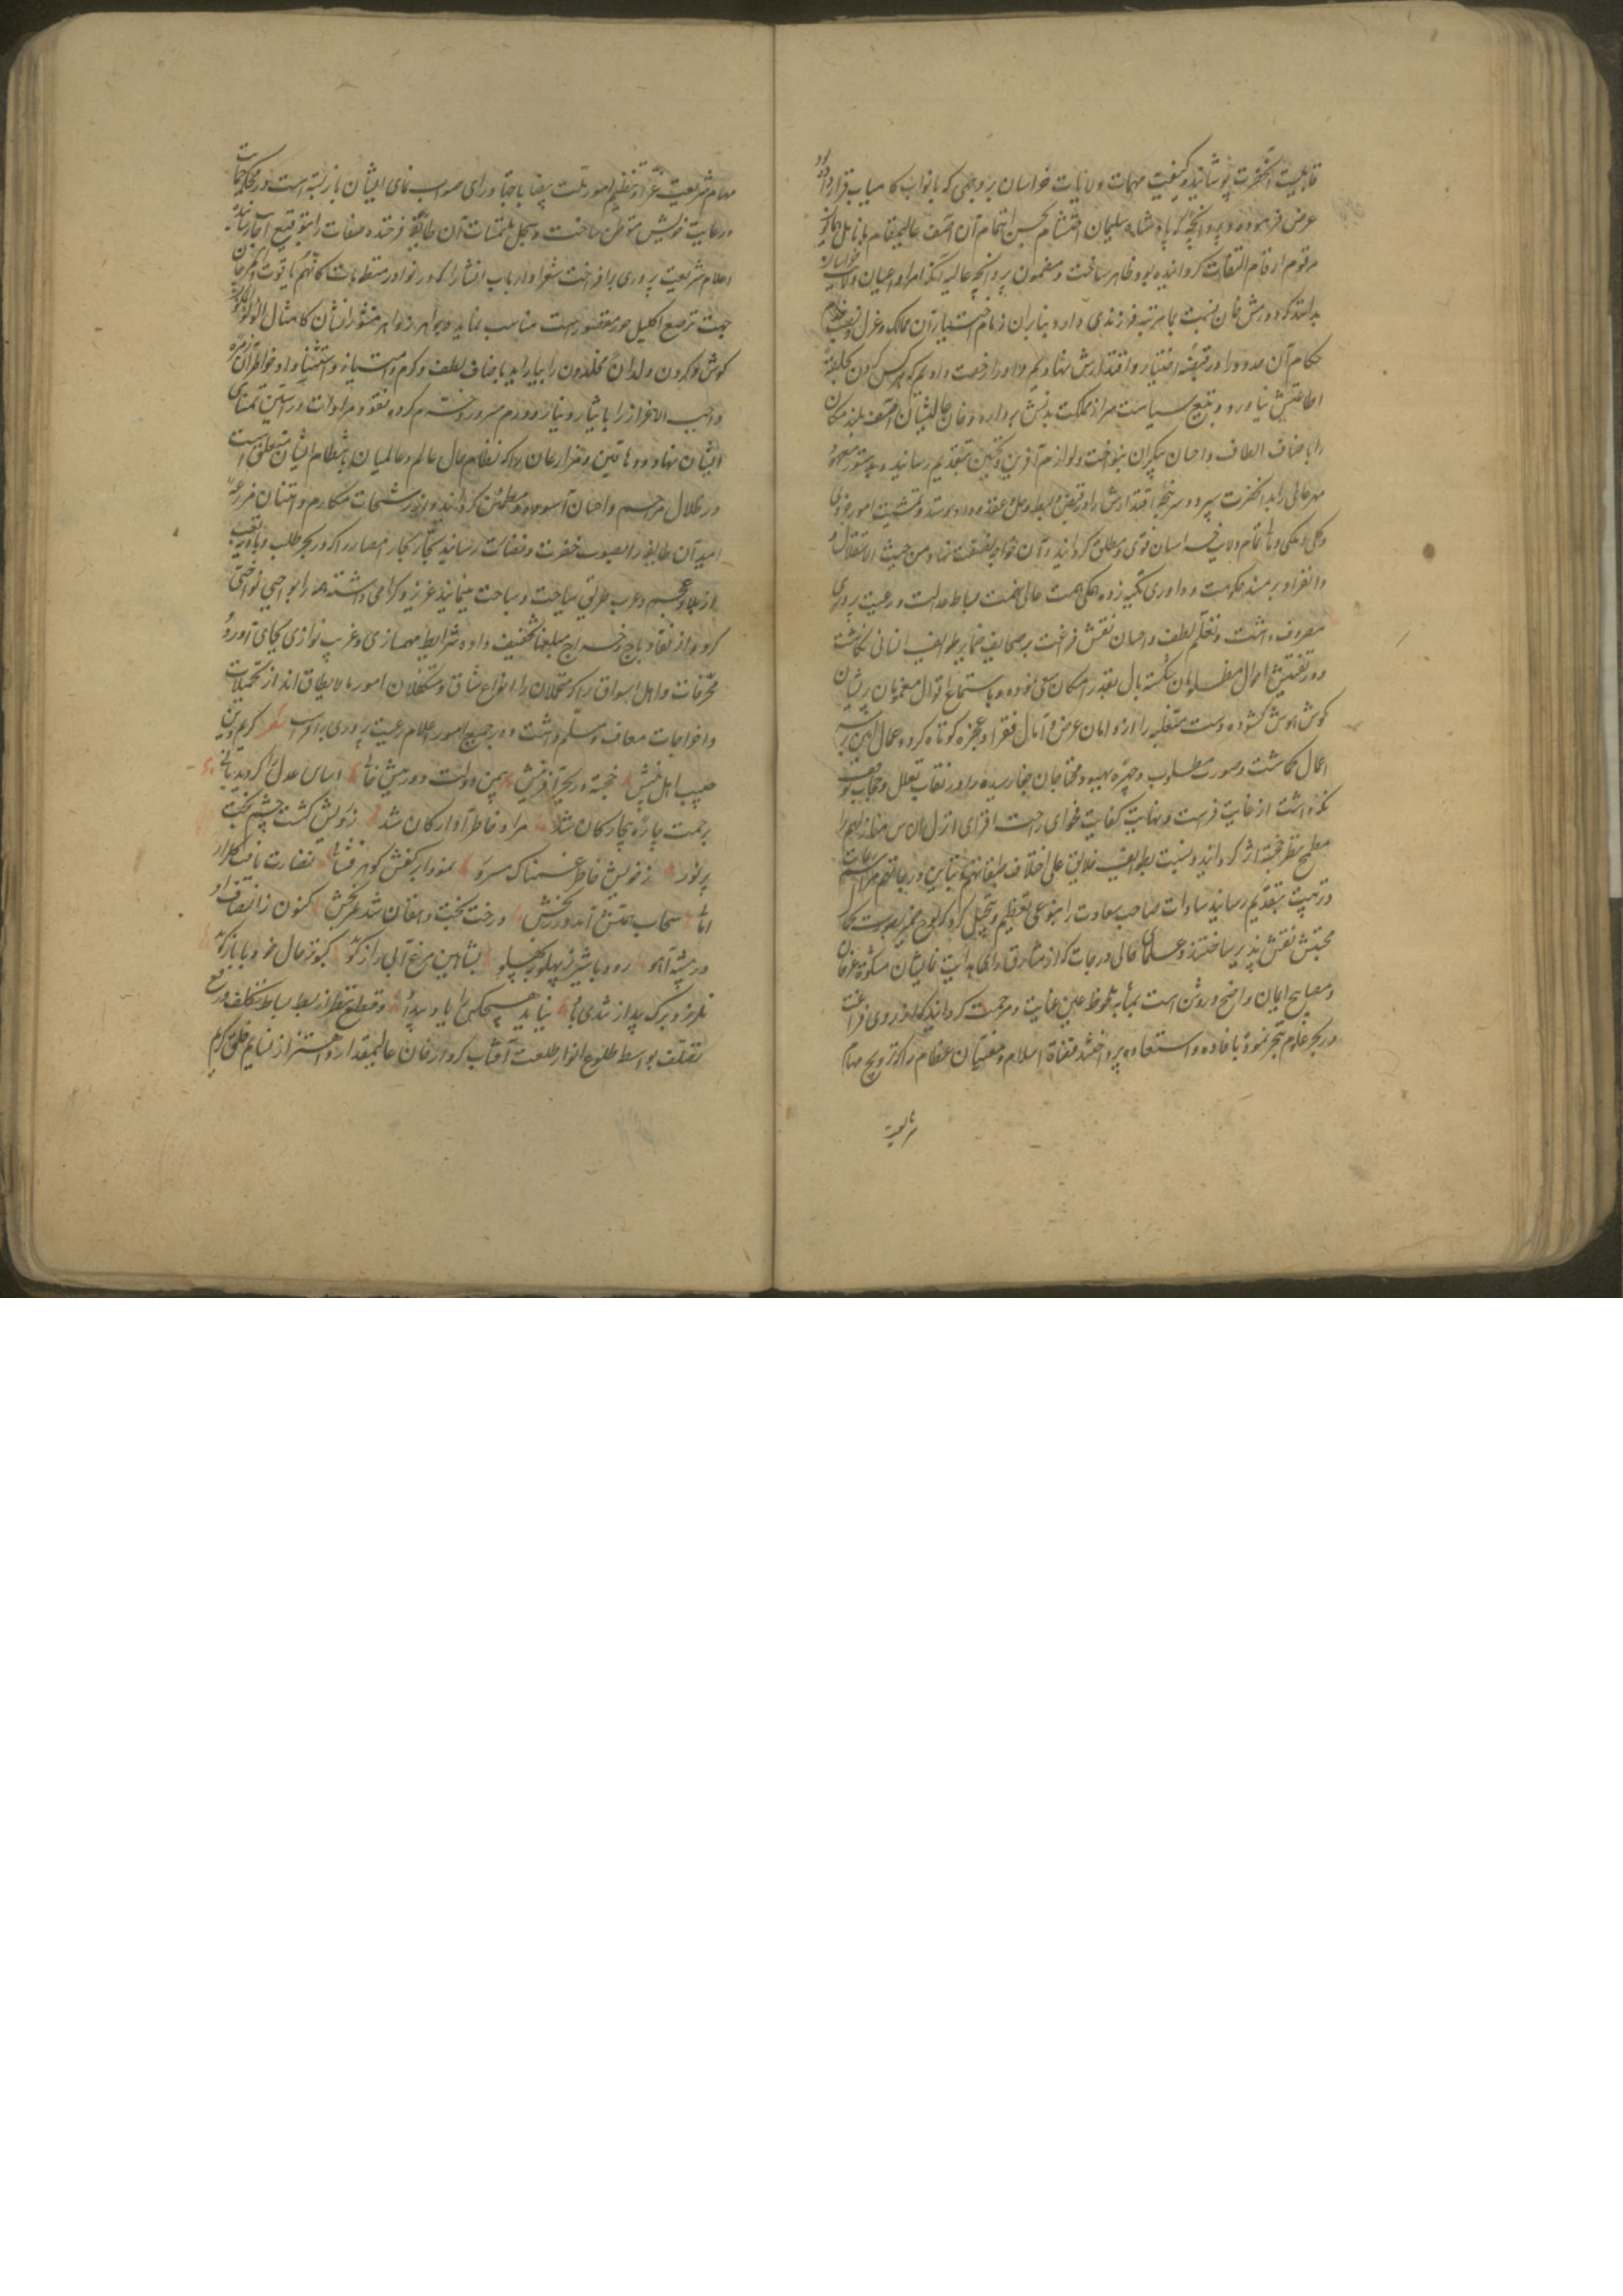 قابلیت آنحضرت پوشانید و کیفیت مهمات ولایات خراسان بر وجهی که با نواب کامیاب قرار داده بود
عرض فرموده و پروانچه که پادشاه سلیمان احتشام بحسن اهتمام آن آصف عالیمقام بانامل
مرقوم ارقام التفات کردانیده بود ظاهر ساخت و مضمون پروانچه عالیه آنکه امرا و اعیان ولایت خراسان
بدانند که دورمش خان نسبت بما مرتبه فرزندی دارد بنابران زمام اختیار آن ممالک و عزل و نصب
حکام آن حدود را در قبضه اختیار و اقتدارش نهادیم و او را رخصت دادیم که هر کس کردن بحلقه
اطاعتش نیاورد و بتیغ سیاست سر از مملکت بدنش بردارد و خان عالیشان آصف بلند مکان
را باصناف الطاف و احسان بیکران بنواخت و لوازم آفرین و تحسین بتقدیم رسانید و بدستور معهود
مهر عالی را بد آنحضرت سپرد و سر پنجه اقتدارش را در قبض و بسط و حل و عقد و داد و ستد و تمشیت امور جزوی
و کلی و ملکی و مالی تمام ولایت خراسان قوی و مطلق کردانید و آن خواجه بلند همت نهاد من حیث الاستقلال
و انفراد بر مسند حکومت و داوری تکیه زده همکی همت عالی نهمت ببساط عدالت و رعیت پروری
مصروف داشت و بقلم لطف و احسان نقش فراغت بر صحایف ضمایر طوایف انسانی نکاشت
و در تفتیش احوال مظلومان شکسته بال بقدر امکان سعی نموده و باستماع اقوال مغمومان پریشان
کوش هوش کشوده دست متغلبه را از دامان عرض و آمال فقرا و عجزه کوتاه کرد و عمال
اعمال نکاشت و صورت مطلوب و چهره بهبود محتاجان جفا رسیده را در نقاب تعلل و حجاب توقف
نگذاشت از غایت فراست و نهایت کفایت فحوای راحت افزای انزل الناس منازلهم را
مطمح نظر خجسته اثر کردانید و نسبت بطوایف خلایق علی اختلاف طبقاتهم و تباین درجاتهم مراسم رعایت
و تربیت بتقدیم رسانید سادات صاحب سعادت را بنوعی تعظیم و تبجیل کرد که لوح ضمیر بصورت
محبتش نقش پذیر ساختند و علمای عالی درجات که از مشارق رای هدایت نمایشان مشکوة عرفان
و مصابیح ایمان واضح و روشن است بمثابه ملحوظ عین عنایت و مرحمت کردانید که از روی فراغت
در بحر علوم تبحر نمود با فاده و استفاده پرداختند قضاة اسلام و مفتیان عظام را که ترویج مهام
شریعت
مهام شریعت غرا و تنظیم امور ملت بیضا باجتهاد و رای صواب نمای ایشان باز بسته است در محکمه
رعایت خویش متوطن ساخت و سجل ملتمسات آن طایفه فرخنده صفات را بتوقیع انجاز رسانیده
اعلام شریعت پروری برافراخت شعرا و ارباب انشا را که در نوادر منظومات کانهم یاقوت و مرجان
جهت ترصیع اکلیل حور مقصورات مناسب نماید و جواهر زواهر منثور انشان کامثال اللولو
کوش و کردن ولدان مخلدون را بیاراید باصناف لطف و کرم امتیاز و استثنا داد و خواطر آن زمره
واجب الاعزاز را با نثار دینار و درم مسرور و خرم کرده نقود مرادات در آستین تمنای
ایشان نهاد و دهاقین و مزارعان را که نظام حال عالم و عالمیان بانتظام ایشان متعلق است
در ظلال مراحم و احسان آسوده و مطمئن کردانید و از رشحات مکارم و امتنان مزرعه
امید آن طایفه را بصوب خضرت و نضارت رسانید تجار تجار امصار را که در بحر طلب
از بلاد عجم و عرب طریق سیاحت و سباحت مینمایند عزیز و کرامی داشته همه را بواجبی نواخت
کرد و از نقاد باج و خراج مبلغها تخفیف داده شرایط مهمانداری و غریب نوازی بجای آورد
محترفات و اهل اسواق را که متحملان انواع مشاق و متکفلان امور مالایطاق اند از تحمیلات
و اخراجات معاف و مسلم داشت و در جمیع امور اعلام رعیت پروری برافراشت شعر کریم
حبیب اهل بینش خجسته در بحر آفرینش بیمن دولت دورمیش خانی اساس عدل را کردید بانی
برحمت چاره بیچارکان شد مراد خاطر آوارکان شد ز رویش کشت چشم بخت
پر نور ز خویش خاطر غمناک مسرور نمود ابر کفش کوهر فشانی نضارت یافت کلزار
امانی سحاب همتش آمد درر بخش درخت بخت دهقان شد ثمر بخش کنون ز انصاف او
در بیشه آهو رود با شیر نر پهلو بپهلو بشاهین مرغ آبی راز کوید کبوتر حال خود با باز کوید
نلرزد برک بید از تندی باد نیاید هیچکس را یاد بیداد و قطع نظر از بسط بساط تکلف و رفع
تصلف بواسطه طلوع انوار طلعت آفتاب کردار خان عالیمقدار و اهتزاز نسایم خلق کریم